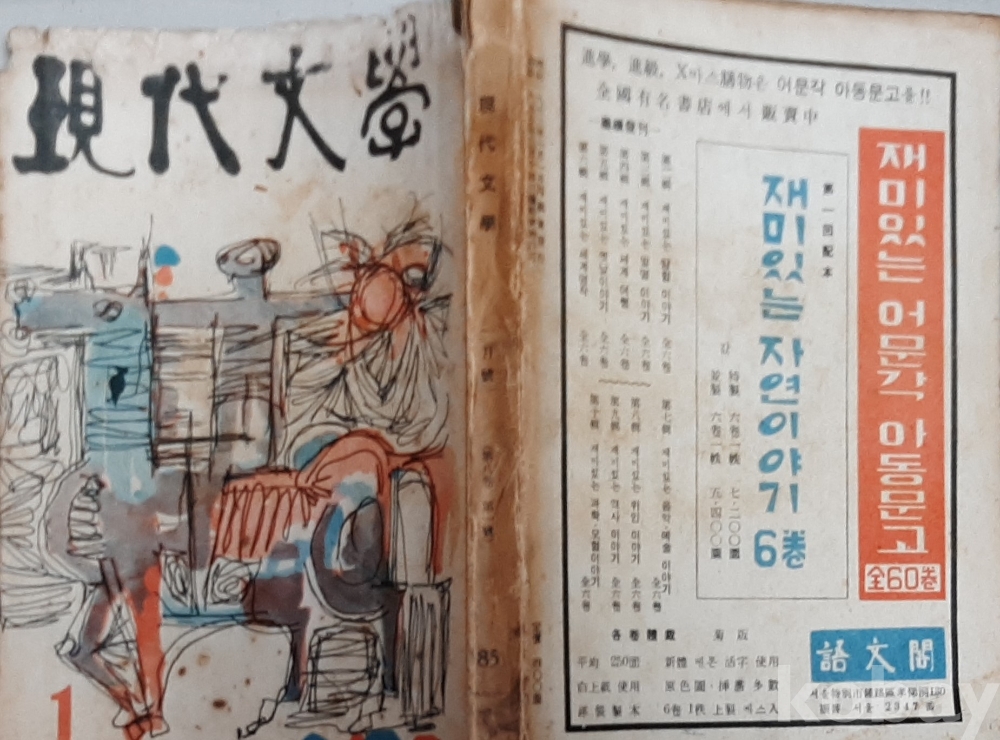 現代文學
1
現代文學
一月號
85
進學, 進級, X마스膳物은 어문각 아동문고를!!
全國有名書店에서 販賣中
재미있는 어문각 아동문고
全60巻
第一回配本
재미있는 자연이야기 6巻
값
特製 六巻一帙 七·二〇〇圜
並製 六巻一帙 五·四〇〇圜
第二輯 재미있는 탐험 이야기 全六巻
第三輯 재미있는 발명 이야기 全六巻
第四輯 재미있는 세계 여행 全六巻
第五輯 재미있는 옛날이야기 全六巻
第六輯 재미있는 세계명작 全六巻
第七輯 재미있는 음악·예술 이야기 全六巻
第八輯 재미있는 위인 이야기 全六巻
第九輯 재미있는 역사 이야기 全六巻
第十輯 재미있는 과학·모험이야기 全六巻
各巻體裁 菊版
平均 250面 新體 베톤 活字 使用
白上紙 使用 原色圖·揷畵 多數
洋裝製本 6巻 1帙 上製 케스入
語文閣
서울特別市鍾路區
振替 서울 2317番
kobay